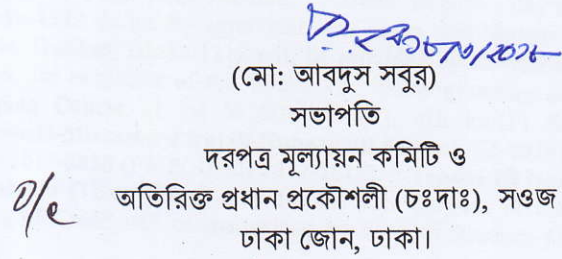 (মো: আবদুস সবুর)
সভাপতি
দরপত্র মূল্যায়ন কমিটি ও
অতিরিক্ত প্রধান প্রকৌশলী (চঃদাঃ), সওজ
ঢাকা জোন, ঢাকা।